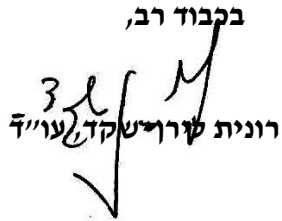 בכבוד רב,
רונית שקד, עו״ד